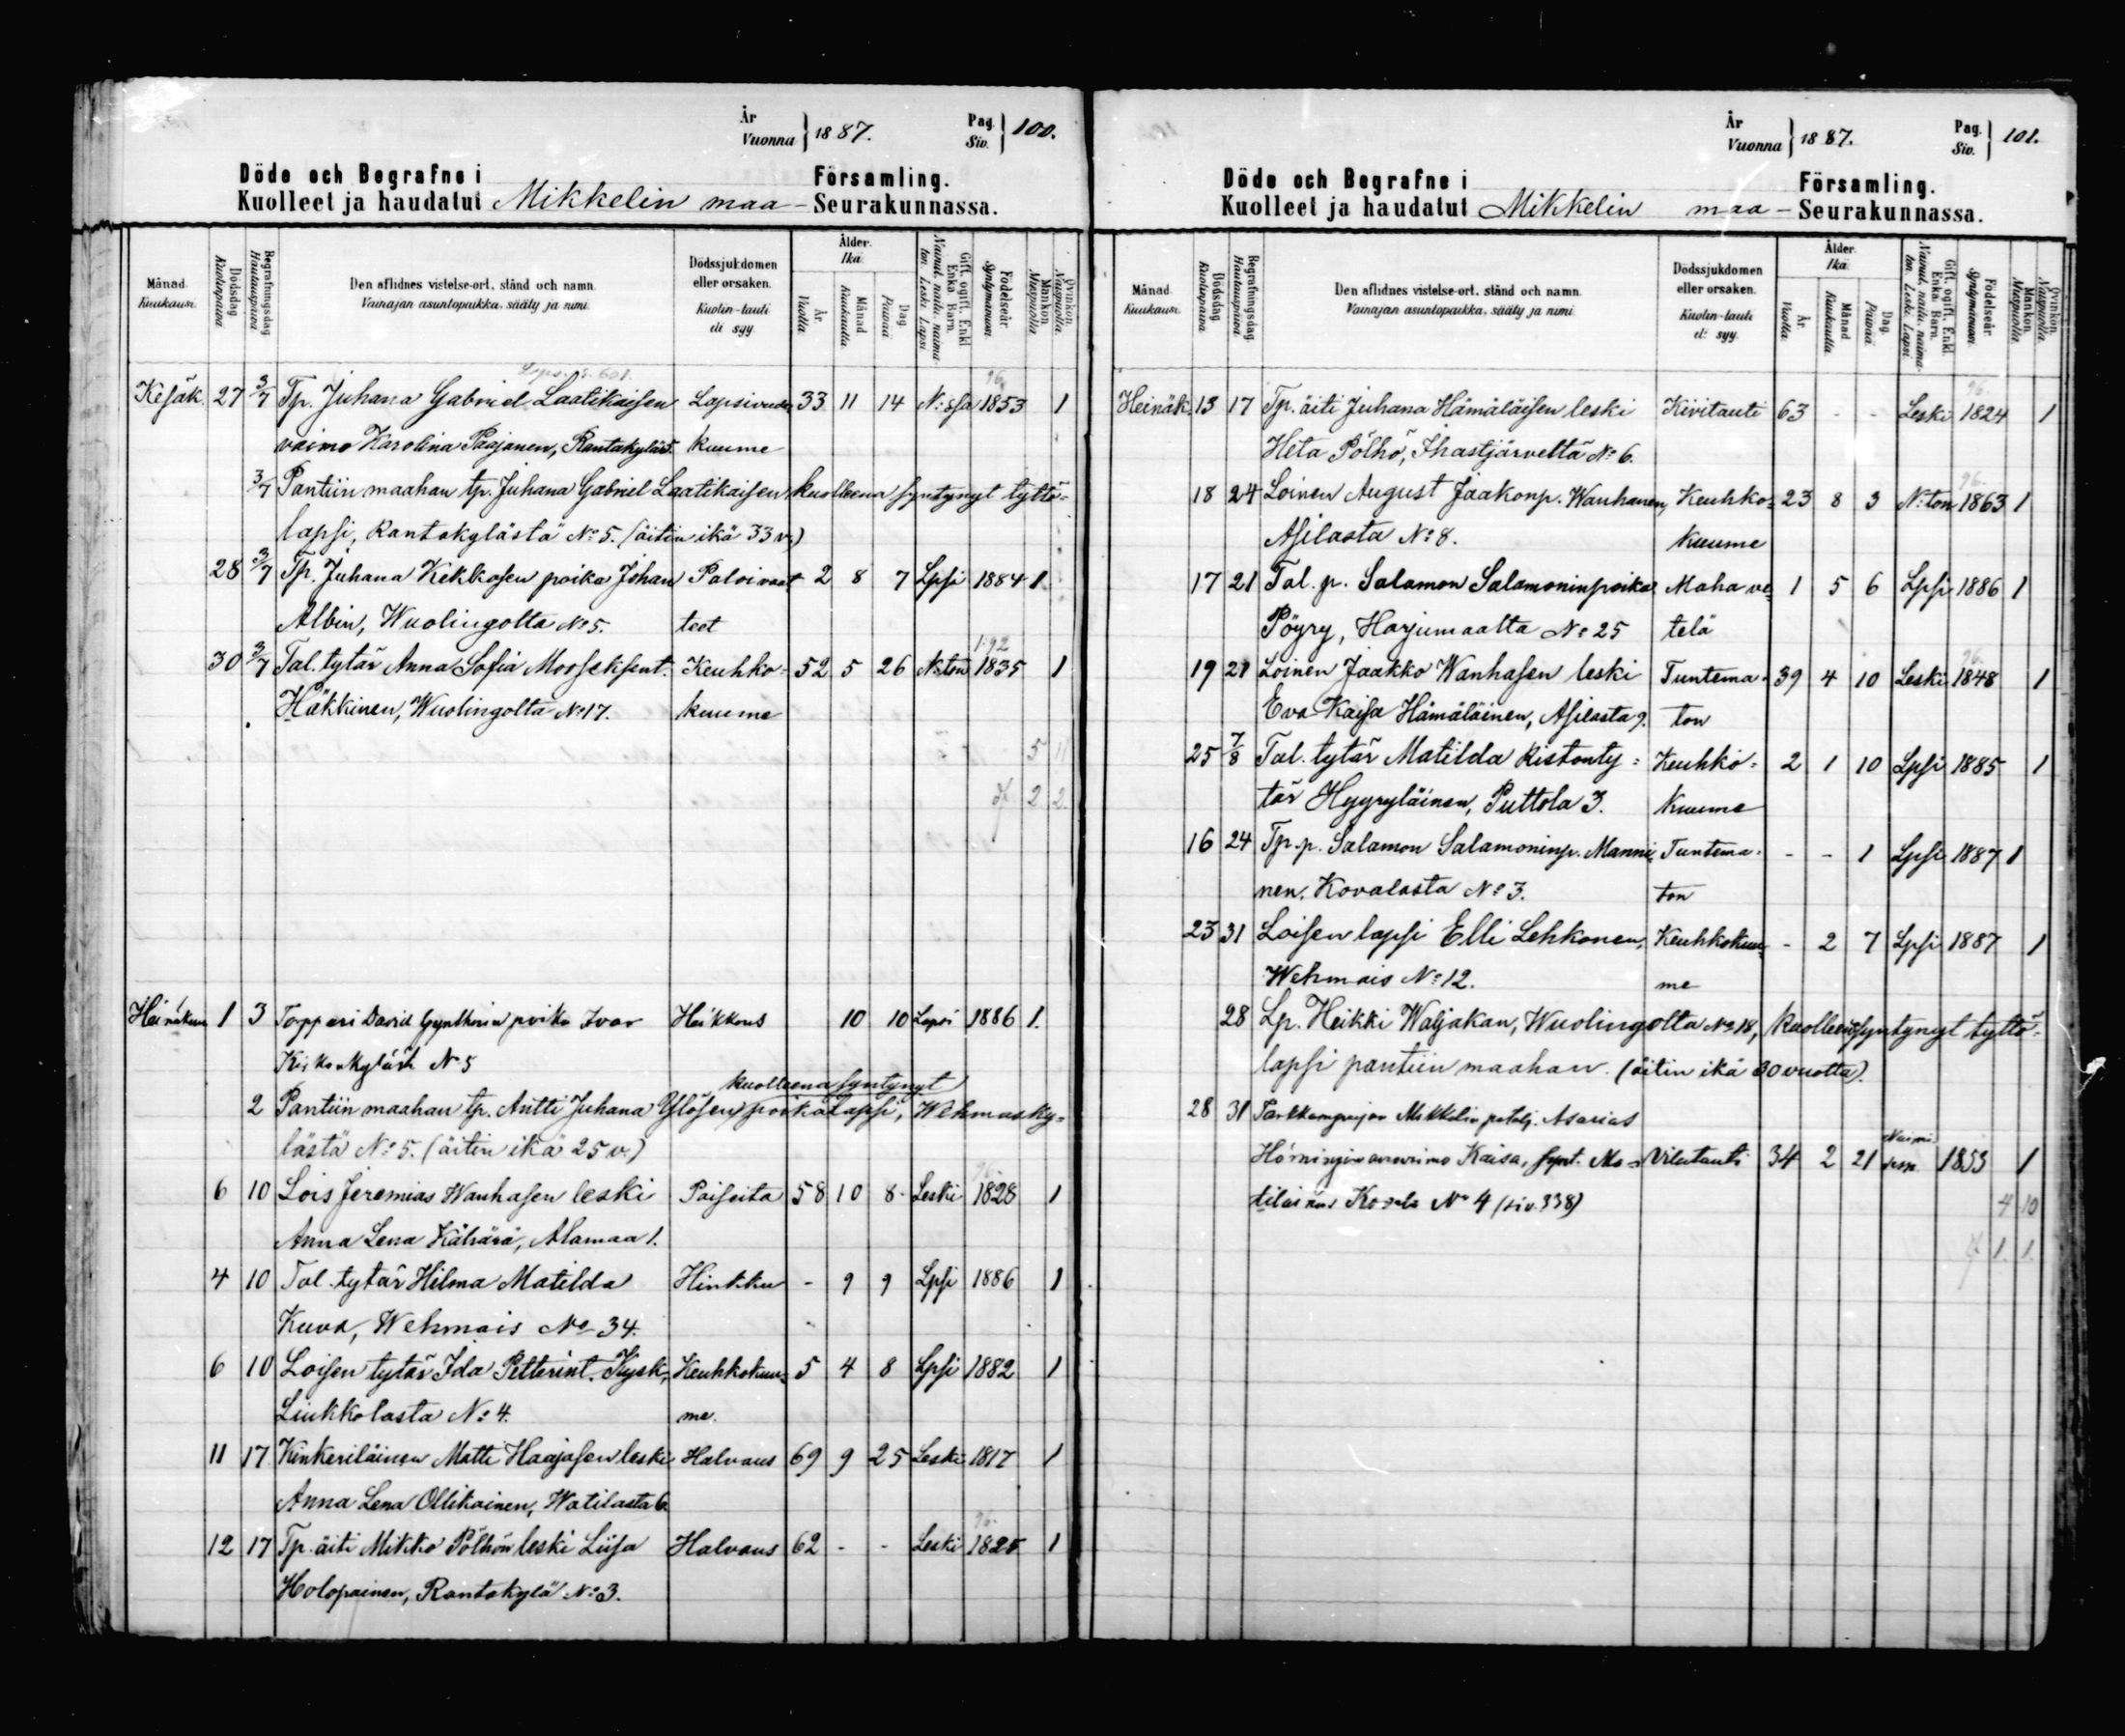 År
Vuonna } 1887. Pag. Siv. } 100.
Döde och Begrafne i Församling.
Kuolleet ja haudatut Mikkelin maa- Seurakunnassa.
Månad. Kuukausi. Dödsdag Kuolinpäiwä. Begrafningsdag Hautauspäiwä. Den aflidnes vistelse-ort, stånd och namn. Vainajan asuntopaikka, sääty ja nimi. Dödssjukdomen eller orsaken. Kuolin-tauti eli syy. Ålder. Ikä. År. Vuotta. Månad Kuukautta. Dag. Päiwää Gift, ogift, Enkl. Enka. Barn. Nainut, naitu, naima-ton. Leski. Lapsi Födelseår. Syntymävuosi. Mankön. Miespuolia. Qvinkön. Naispuolia.
Kesäk. 27 3/7 Tp. Juhana Gabriel Laatikaisen Lapsivuode 33 11 14 N:ssa 1853 1
vaimo Karolina Paajanen, Rantakylä 5. kuume
3/7 Pantiin maahan tp. Juhana Gabriel Laatikaisen kuolleena syntynyt tyttö-
lapsi, Rantakylästä No 5. (äitin ikä 33 v.)
28 3/7 Tp. Juhana Kekkosen poika Johan Paloivaat 2 8 7 Lpsi 1884 1
Albin, Wuolingolta No 5. teet
30 3/7 Tal. tytär Anna Sofia Mooseksent. Keuhko- 52 5 26 N:ton 1835 1
Häkkinen, Wuolingolta No 17. kuume
5 11
2 2
Heinäkuu 1 3 Torppari David poika Ivar Heikkous 10 10 Lapsi 1886 1.
No 5
kuolleena syntynyt
2 Pantiin maahan tp. Antti Juhana Ylösen poikalapsi, Wehmasky-
lästä No 5. (äitin ikä 25 v.)
6 10 Lois Jeremias Wanhasen leski Paiseita 58 10 8 Leski 1828 1
Anna Lena Kähärä, Alamaa 1.
4 10 Tal. tytär Hilma Matilda Hinkku - 9 9 Lpsi 1886 1
Kuva, Wehmais No 34.
6 10 Loisen tytär Ida Petterint. Kysk, Keuhkokuu- 5 4 8 Lpsi 1882 1
Liukkolasta No 4. me.
11 17 Kinkeriläinen Matti Haajasen leski Halvaus 69 9 25 Leski 1817 1
Anna Lena Ollikainen, Watilasta 6.
12 17 Tp. äiti Mikko Pölhön leski Liisa Halvaus 62 - - Leski 1825 1
Holopainen, Rantakylä No 3.
År
Vuonna } 1887. Pag. Siv. } 101.
Döde och Begrafne i Församling.
Kuolleet ja haudatut Mikkelin maa- Seurakunnassa.
Månad. Kuukausi. Dödsdag Kuolinpäiwä. Begrafningsdag Hautauspäiwä. Den aflidnes vistelse-ort, stånd och namn. Vainajan asuntopaikka, sääty ja nimi. Dödssjukdomen eller orsaken. Kuolin-tauti eli syy. Ålder. Ikä. År. Vuotta. Månad Kuukautta. Dag. Päiwää Gift, ogift, Enkl. Enka. Barn. Nainut, naitu, naima-ton. Leski. Lapsi Födelseår. Syntymävuosi. Mankön. Miespuolia. Qvinkön. Naispuolia.
Heinäk. 13 17 Tp. äiti Juhana Hämäläisen leski Kivitauti 63 - - Leski 1824 1
Heta Pölhö, Ihastjärveltä No 6.
18 24 Loinen August Jaakonp. Wanhanen, Keuhko- 23 8 3 N:ton 1863 1
Asilasta No 8. kuume
17 21 Tal. p. Salamon Salamoninpoika Maha ve- 1 5 6 Lpsi 1886 1
Pöyry, Harjumaalta No 25 telä
19 21 Loinen Jaakko Wanhasen leski Tuntema- 39 4 10 Leski 1848 1
Eva Kaisa Hämäläinen, Asilasta 9. ton
25 7/8 Tal. tytär Matilda Ristonty- Keuhko- 2 1 10 Lpsi 1885 1
tär Hyyryläinen, Puttola 3. kuume
16 24 Tp. p. Salamon Salamoninp. Manni- Tuntema- - - 1 Lpsi 1887 1
nen, Kovalasta No 3. ton
23 31 Loisen lapsi Elli Lehkonen, Keuhkokuu- - 2 7 Lpsi 1887 1
Wehmais No 12. me
28 Lp. Heikki Waljakan, Wuolingolta No 18, kuolleena syntynyt tyttö-
lapsi pantiin maahan. (äitin ikä 30 vuotta).
28 31 Mikkelin patalj. Asarias
vaimo Kaisa, synt. Ma- Vilutauti 34 2 21 1853 1
tilainen No 4 (siv. 338)
4 10
1. 1.